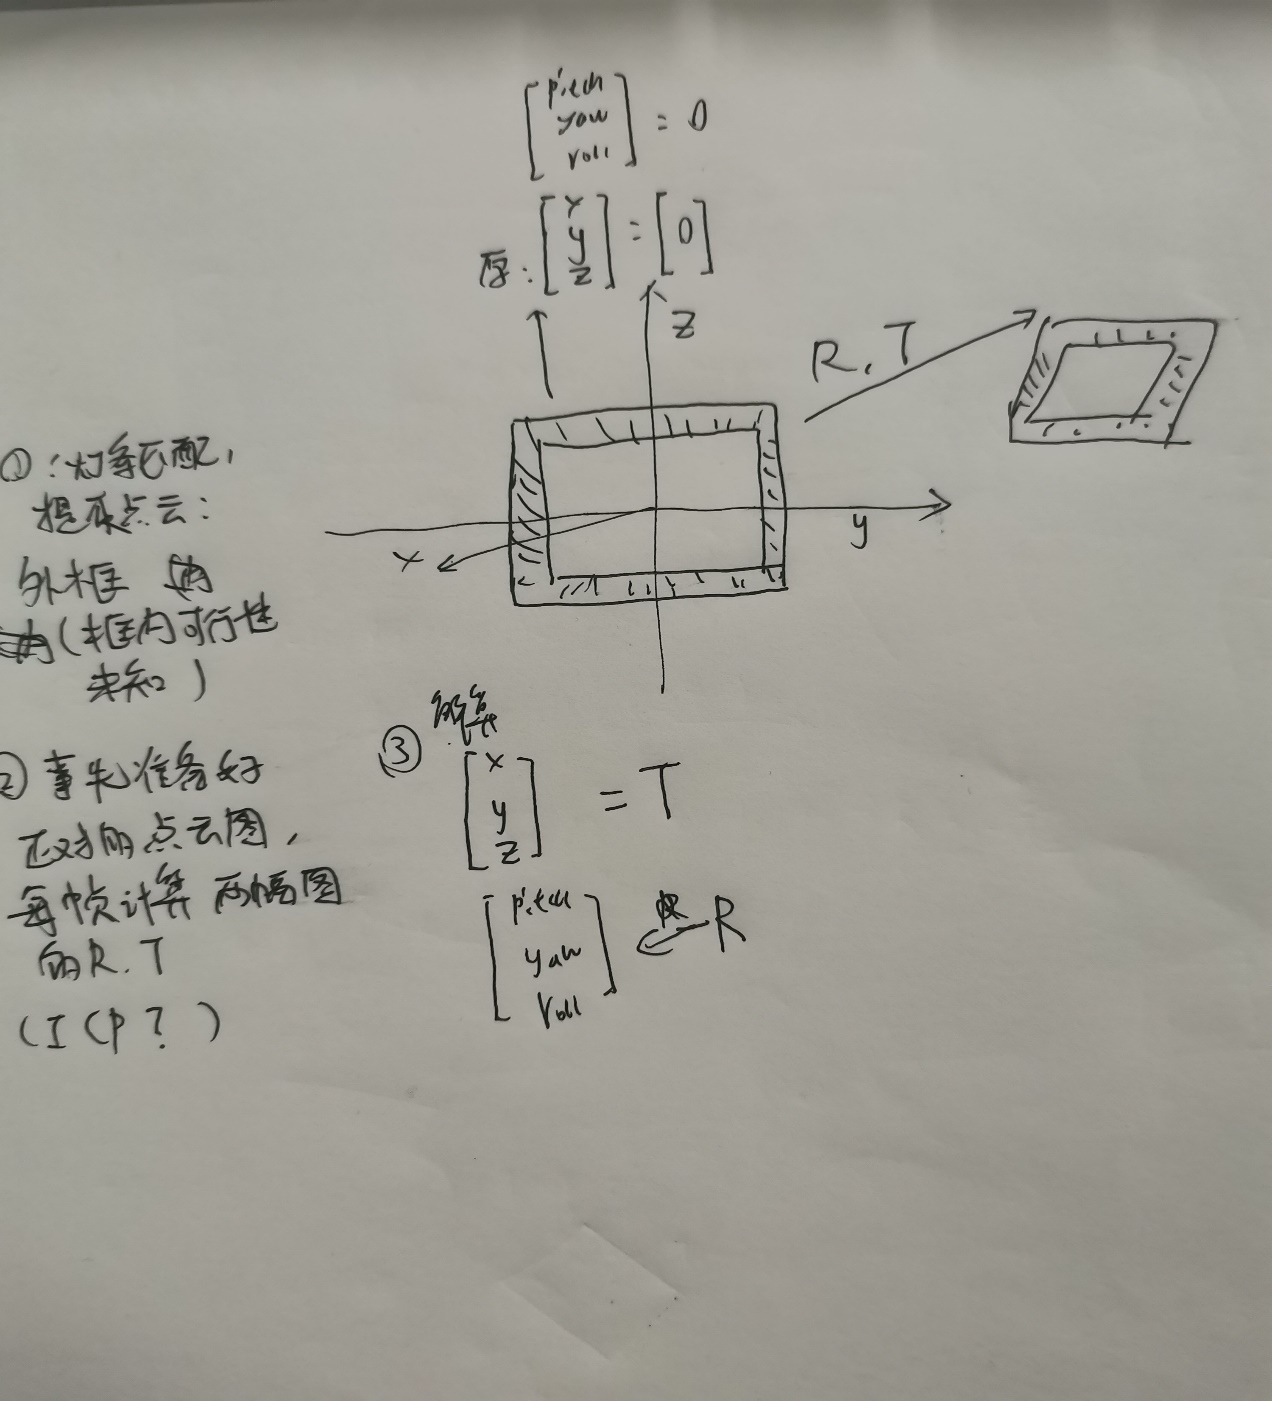 [pitch
yaw
roll] = 0
原: [x
y
z] = [0]
z
R, T
y
x
①: 灯条匹配,
提取点云:
外框
(框内可行性
未知)
② 事先准备好
正对的点云图,
每帧计算两幅图
的R.T
(ICP?)
③ 解算
[x
y
z] = T
[pitch
yaw
roll] R